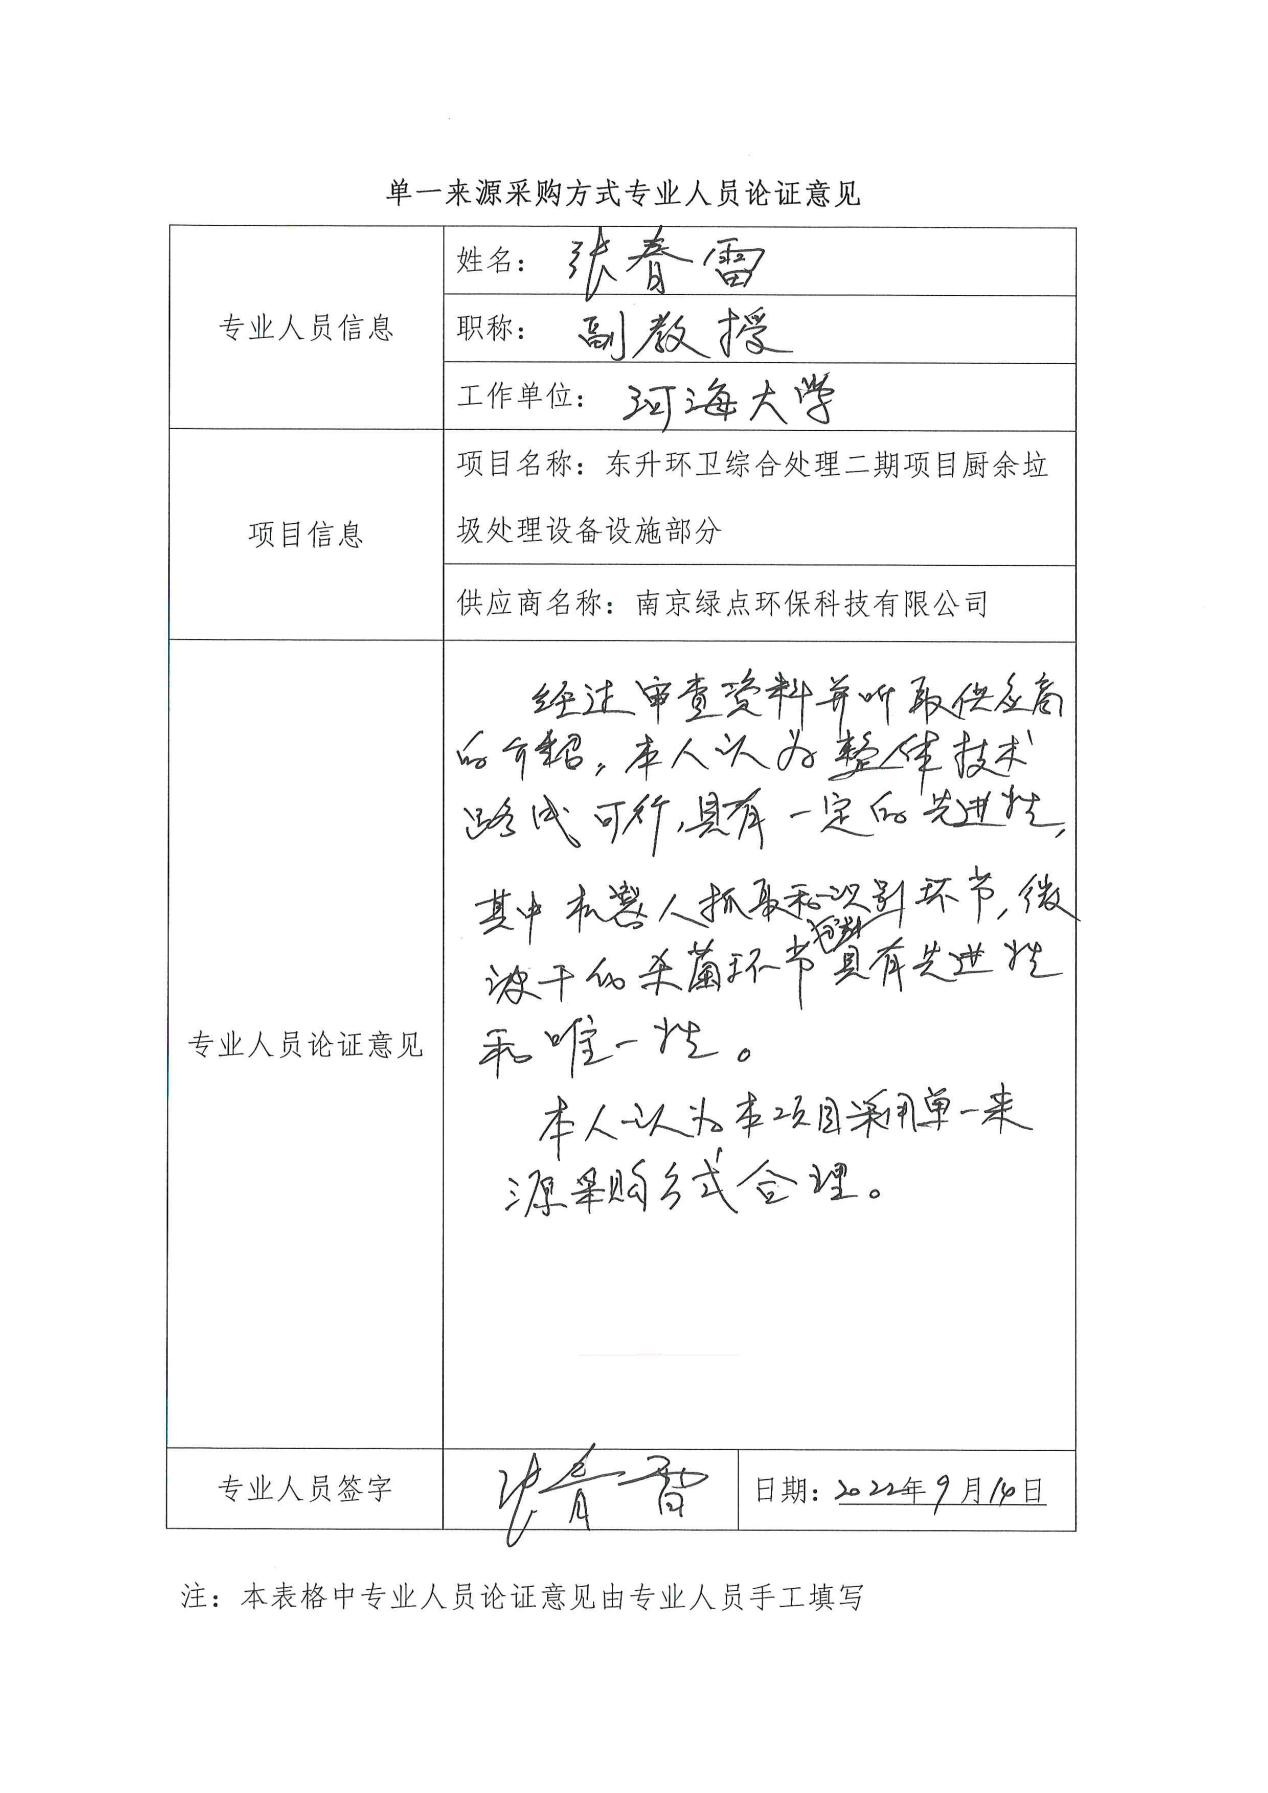 单一来源采购方式专业人员论证意见
专业人员信息
姓名：张春雷
职称：副教授
工作单位：河海大学
项目信息
项目名称：东升环卫综合处理二期项目厨余垃
圾处理设备设施部分
供应商名称：南京绿点环保科技有限公司
专业人员论证意见
经过审查资料并听取供应商
的介绍，本人认为整体技术
路线可行，具有一定的先进性，
其中机器人抓取和识别环节，微
波干化杀菌环节具有先进性
和唯一性。
本人认为本项目采用单一来
源采购方式合理。
专业人员签字
张春雷
日期：2022年9月14日
注：本表格中专业人员论证意见由专业人员手工填写